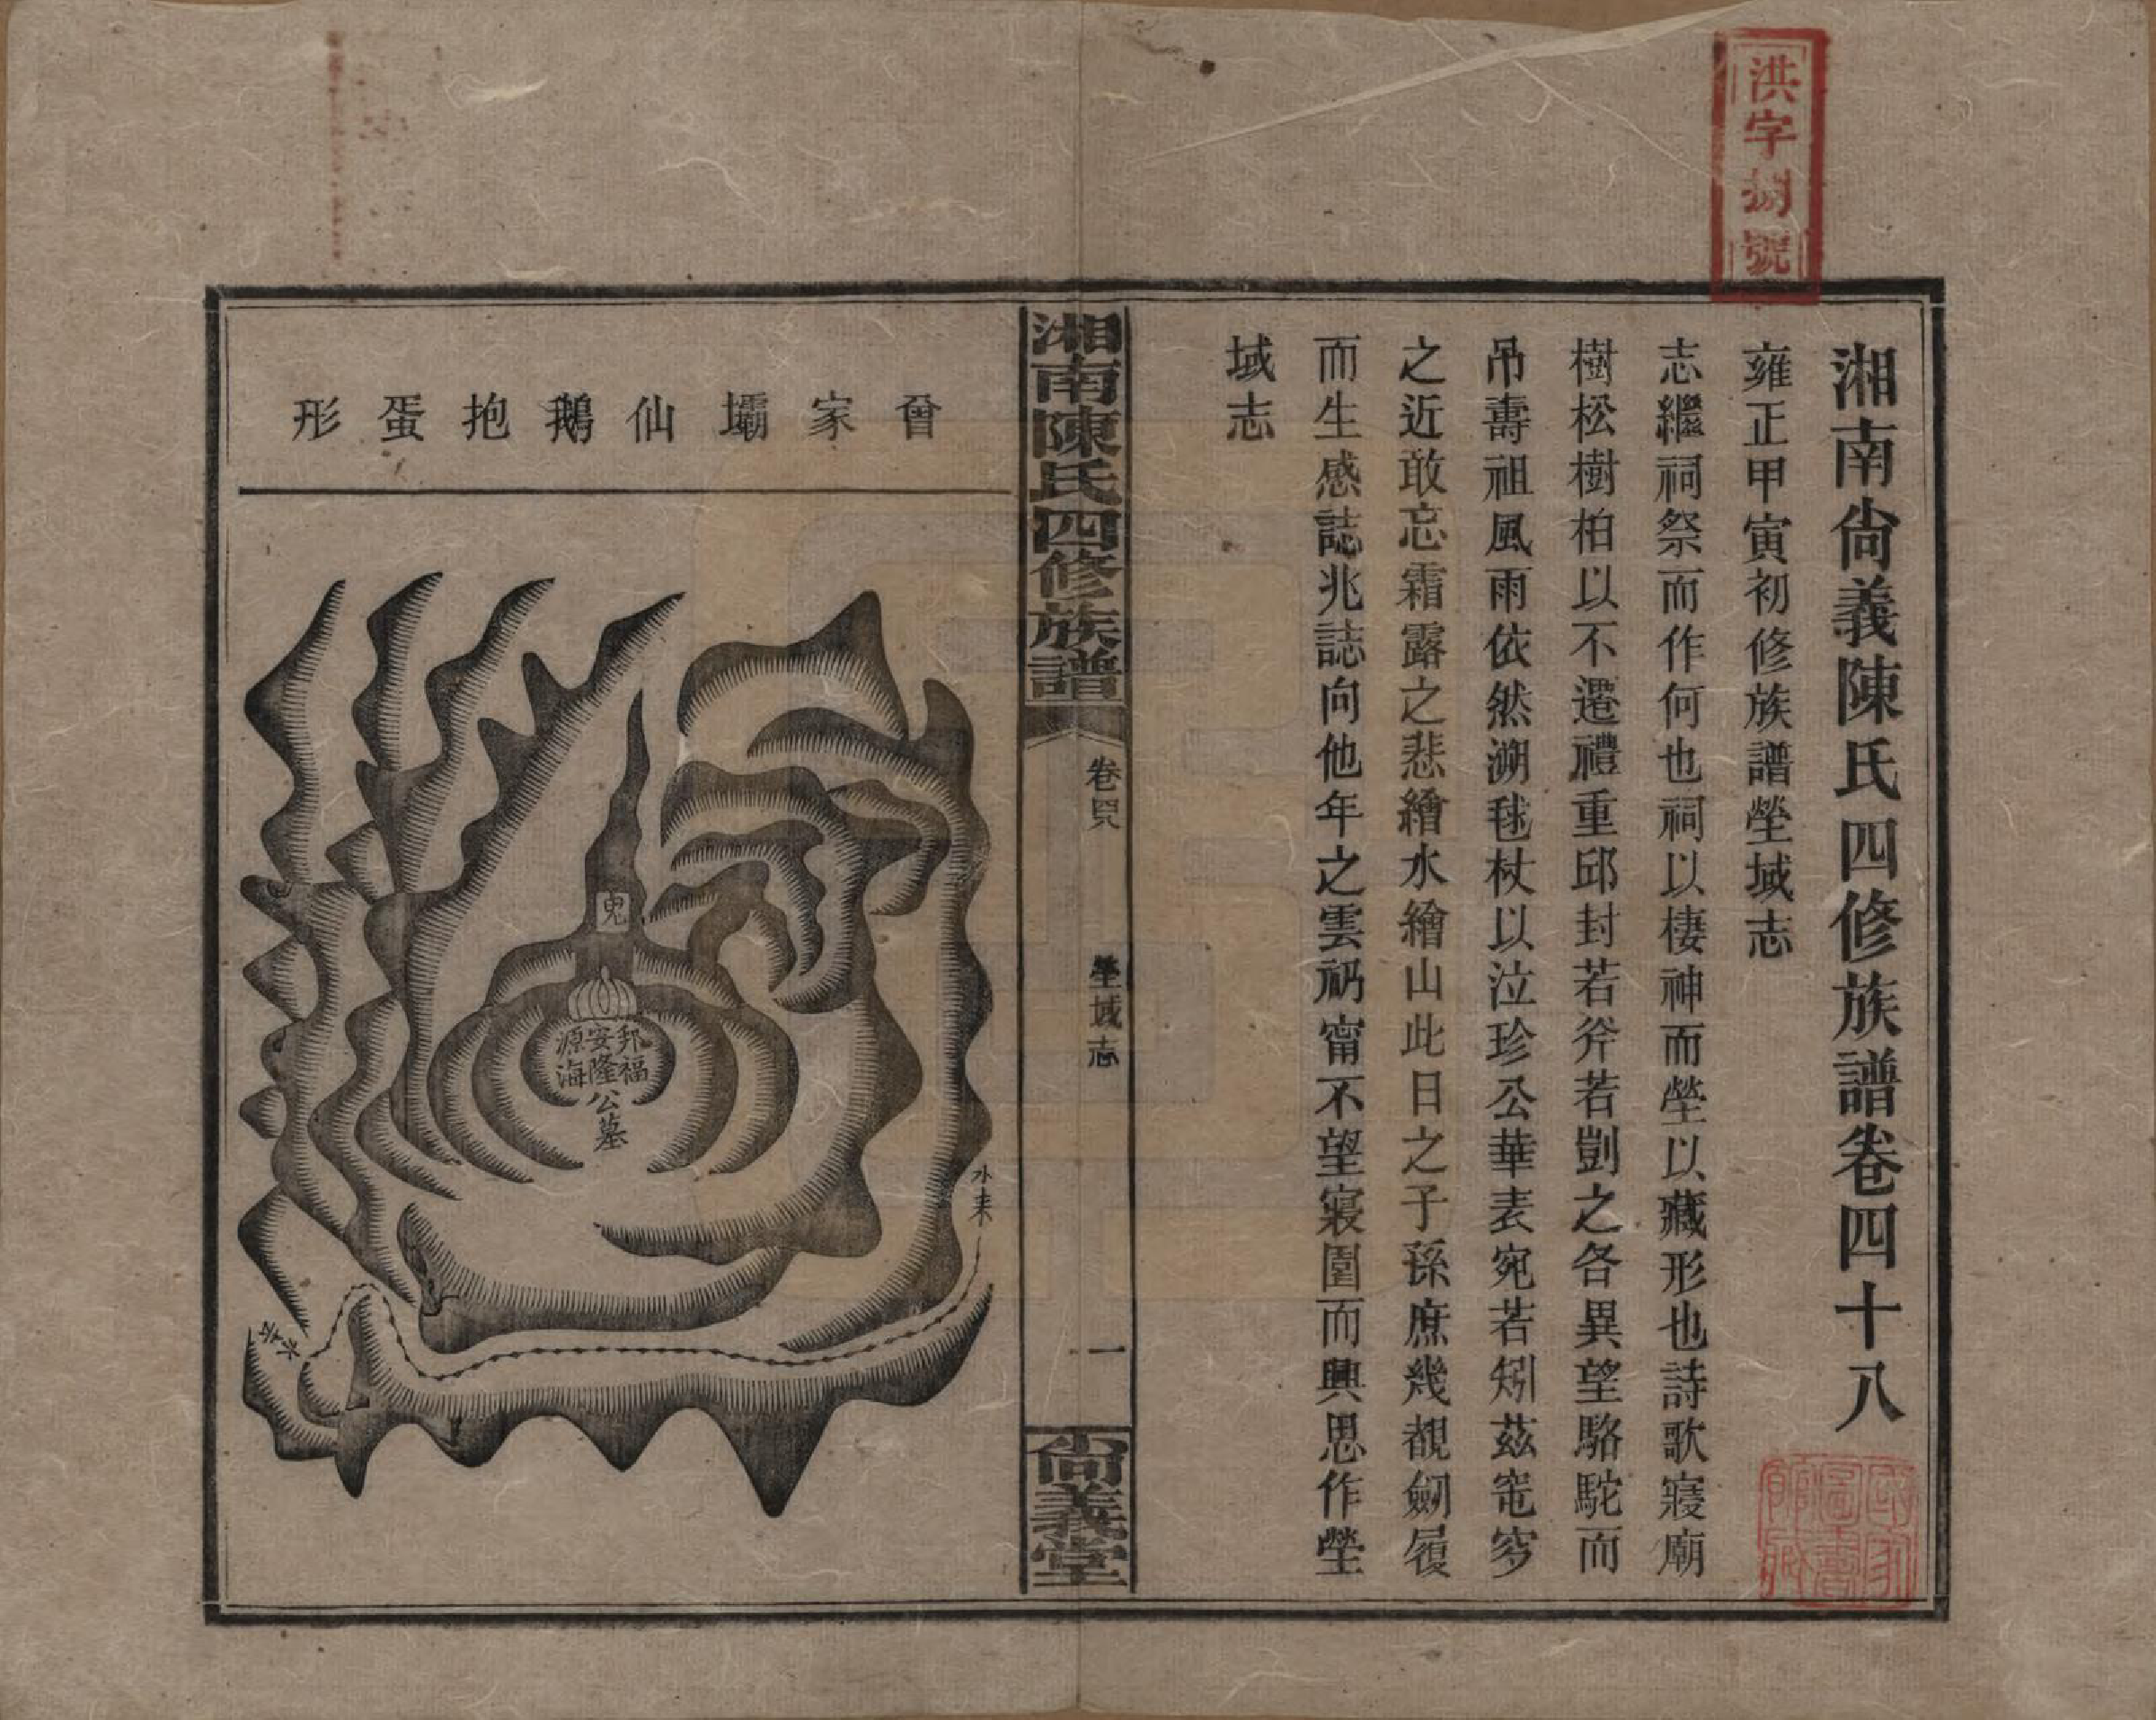 洪字捌號
湘南尙義陳氏四修族譜卷四十八
雍正甲寅初修族譜塋域志
志繼祠祭而作何也祠以棲神而塋以藏形也詩歌寢廟
樹松樹柏以不遷禮重邱封若斧若剴之各異望駱駝而
吊壽祖風雨依然溯毬杖以泣珍公華表宛若矧茲窀穸
之近敢忘霜露之悲繪水繪山此日之子孫庶幾覩劒履
而生感誌兆誌向他年之雲礽甯不望寢園而興思作塋
域志
湘南陳氏四修族譜
卷四八
塋域志
一
尙義堂
曾家壩仙鵝抱蛋形
鬼
邦福
安隆公墓
源海
水來
水去